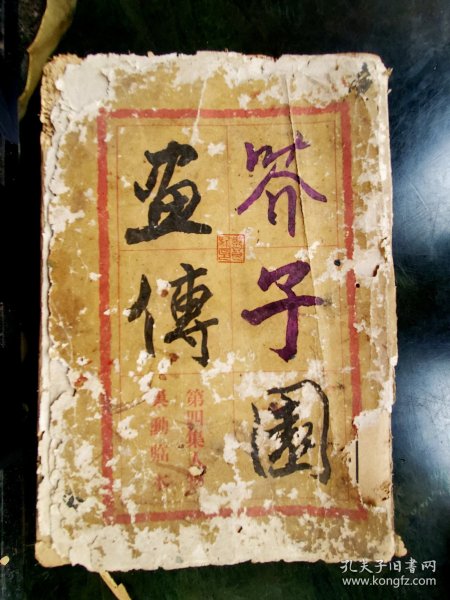 芥子園
畫傳
第四集人物
巢勳臨本
孔夫子旧书网
www.kongfz.com